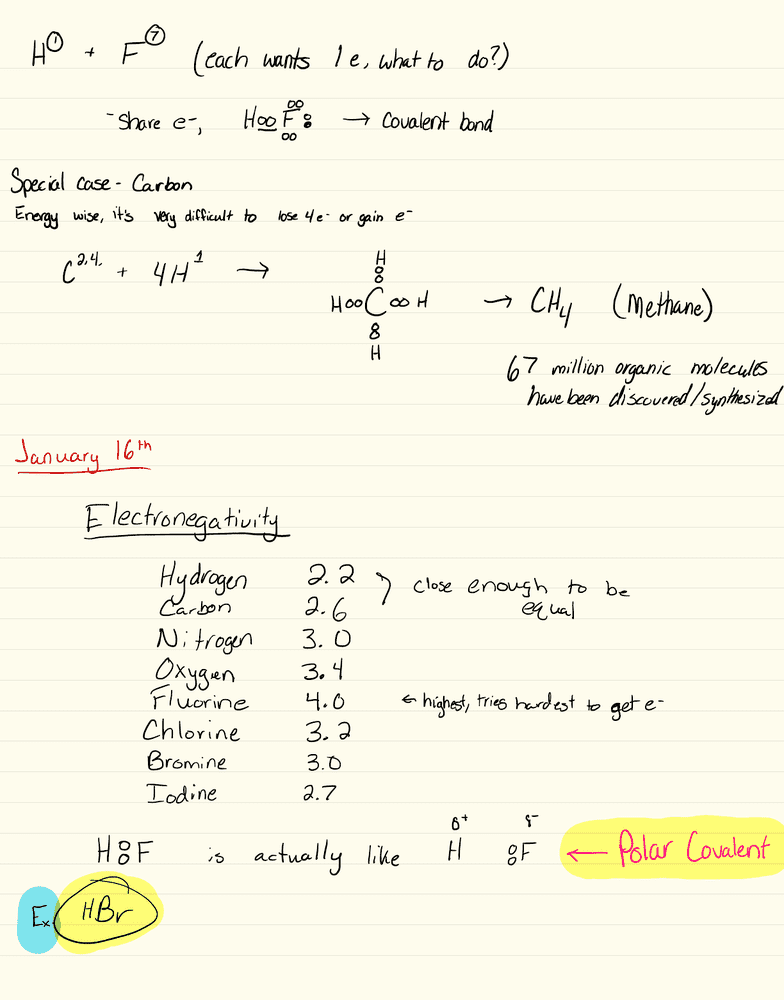 H① + F⑦ (each wants 1e, what to do?)
-Share e-, H F → Covalent bond
Special case - Carbon
Energy wise, it's very difficult to lose 4e- or gain e-
C 2,4. + 4H 1 →
H
H C H → CH4 (Methane)
H
67 million organic molecules
have been discovered/synthesized
January 16th
Electronegativity
Hydrogen 2.2 close enough to be
Carbon 2.6 equal
Nitrogen 3.0
Oxygen 3.4
Fluorine 4.0 ← highest, tries hardest to get e-
Chlorine 3.2
Bromine 3.0
Iodine 2.7
δ+ δ-
H:F is actually like H :F ← Polar Covalent
Ex. HBr